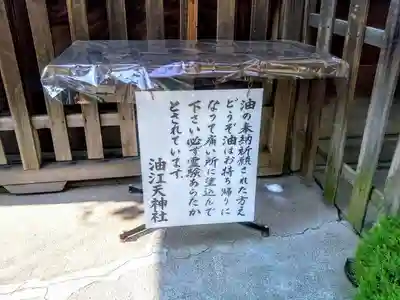 油の奉納祈願された方え
どうぞ油はお持ち帰りに
なって痛い所に塗込んで
下さい必ず霊験あらたか
とされています
油江天神社